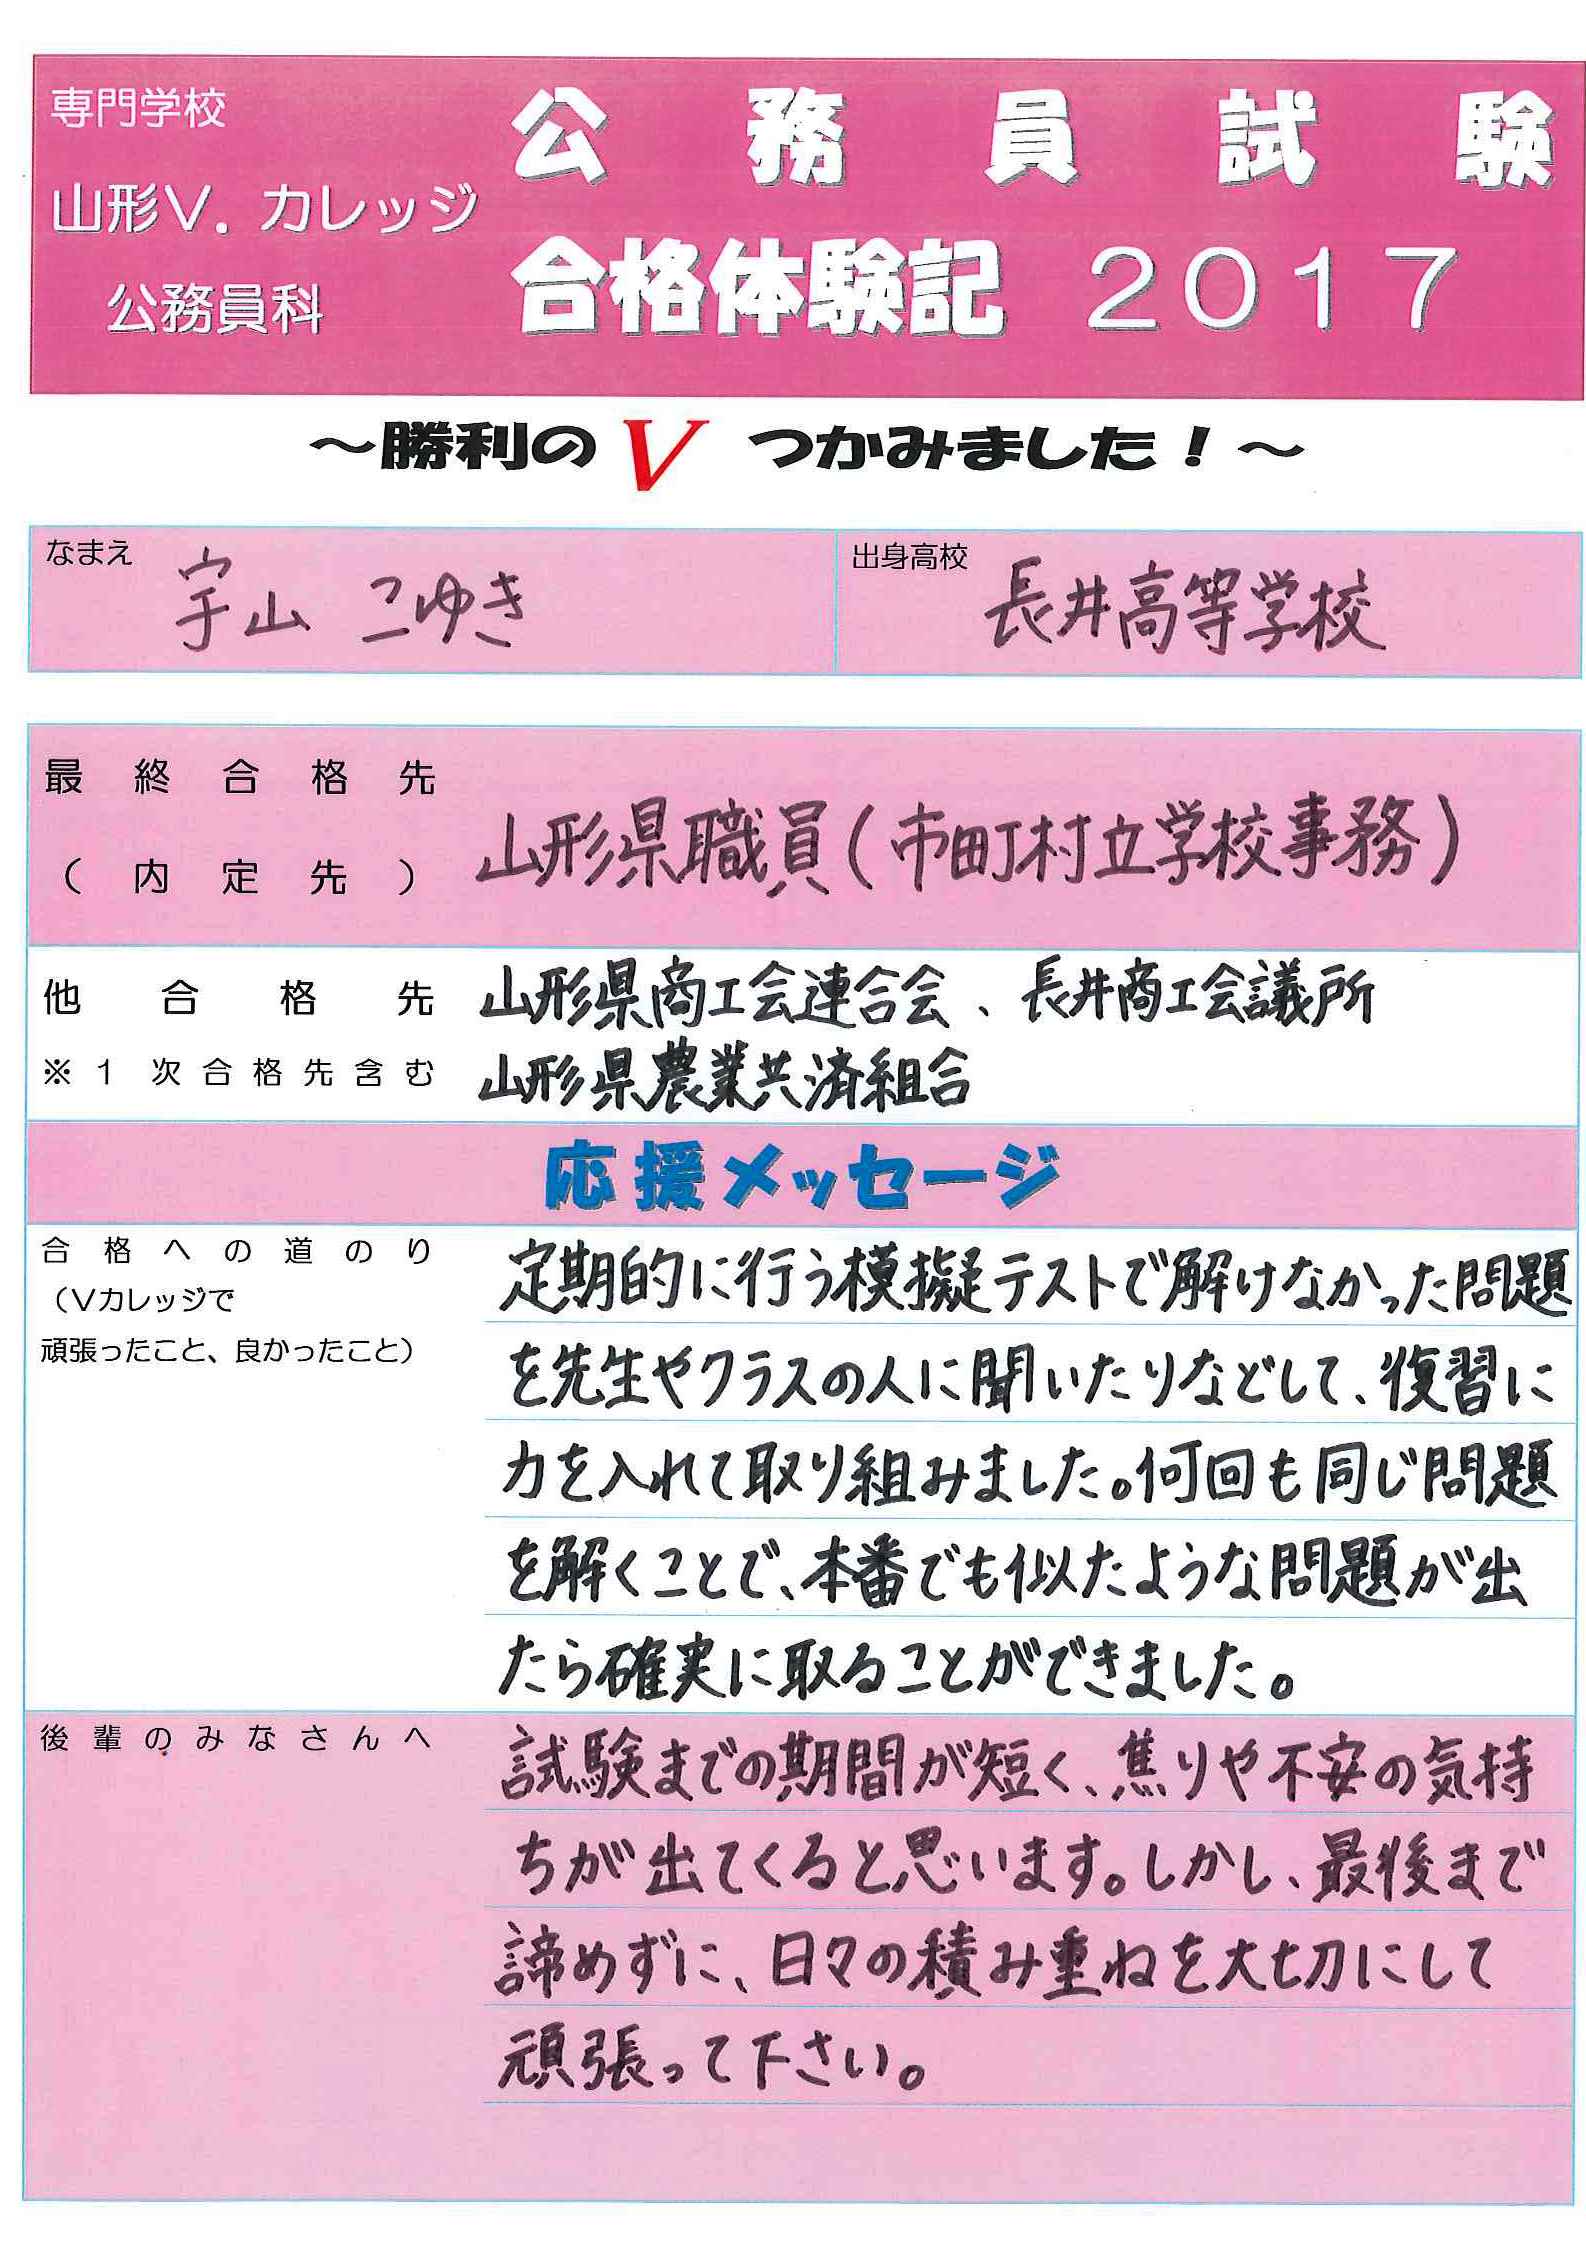 専門学校
山形V．カレッジ
公務員科
公務員試験
合格体験記 2017
～勝利のV つかみました！～
なまえ
宇山 こゆき
出身高校
長井高等学校
最終合格先
（内定先）
山形県職員(市町村立学校事務)
他合格先
※1次合格先含む
山形県商工会連合会、長井商工会議所
山形県農業共済組合
応援メッセージ
合格への道のり
（Vカレッジで
頑張ったこと、良かったこと）
定期的に行う模擬テストで解けなかった問題
を先生やクラスの人に聞いたりなどして、復習に
力を入れて取り組みました。何回も同じ問題
を解くことで、本番でも似たような問題が出
たら確実に取ることができました。
後輩のみなさんへ
試験までの期間が短く、焦りや不安の気持
ちが出てくると思います。しかし、最後まで
諦めずに、日々の積み重ねを大切にして
頑張って下さい。